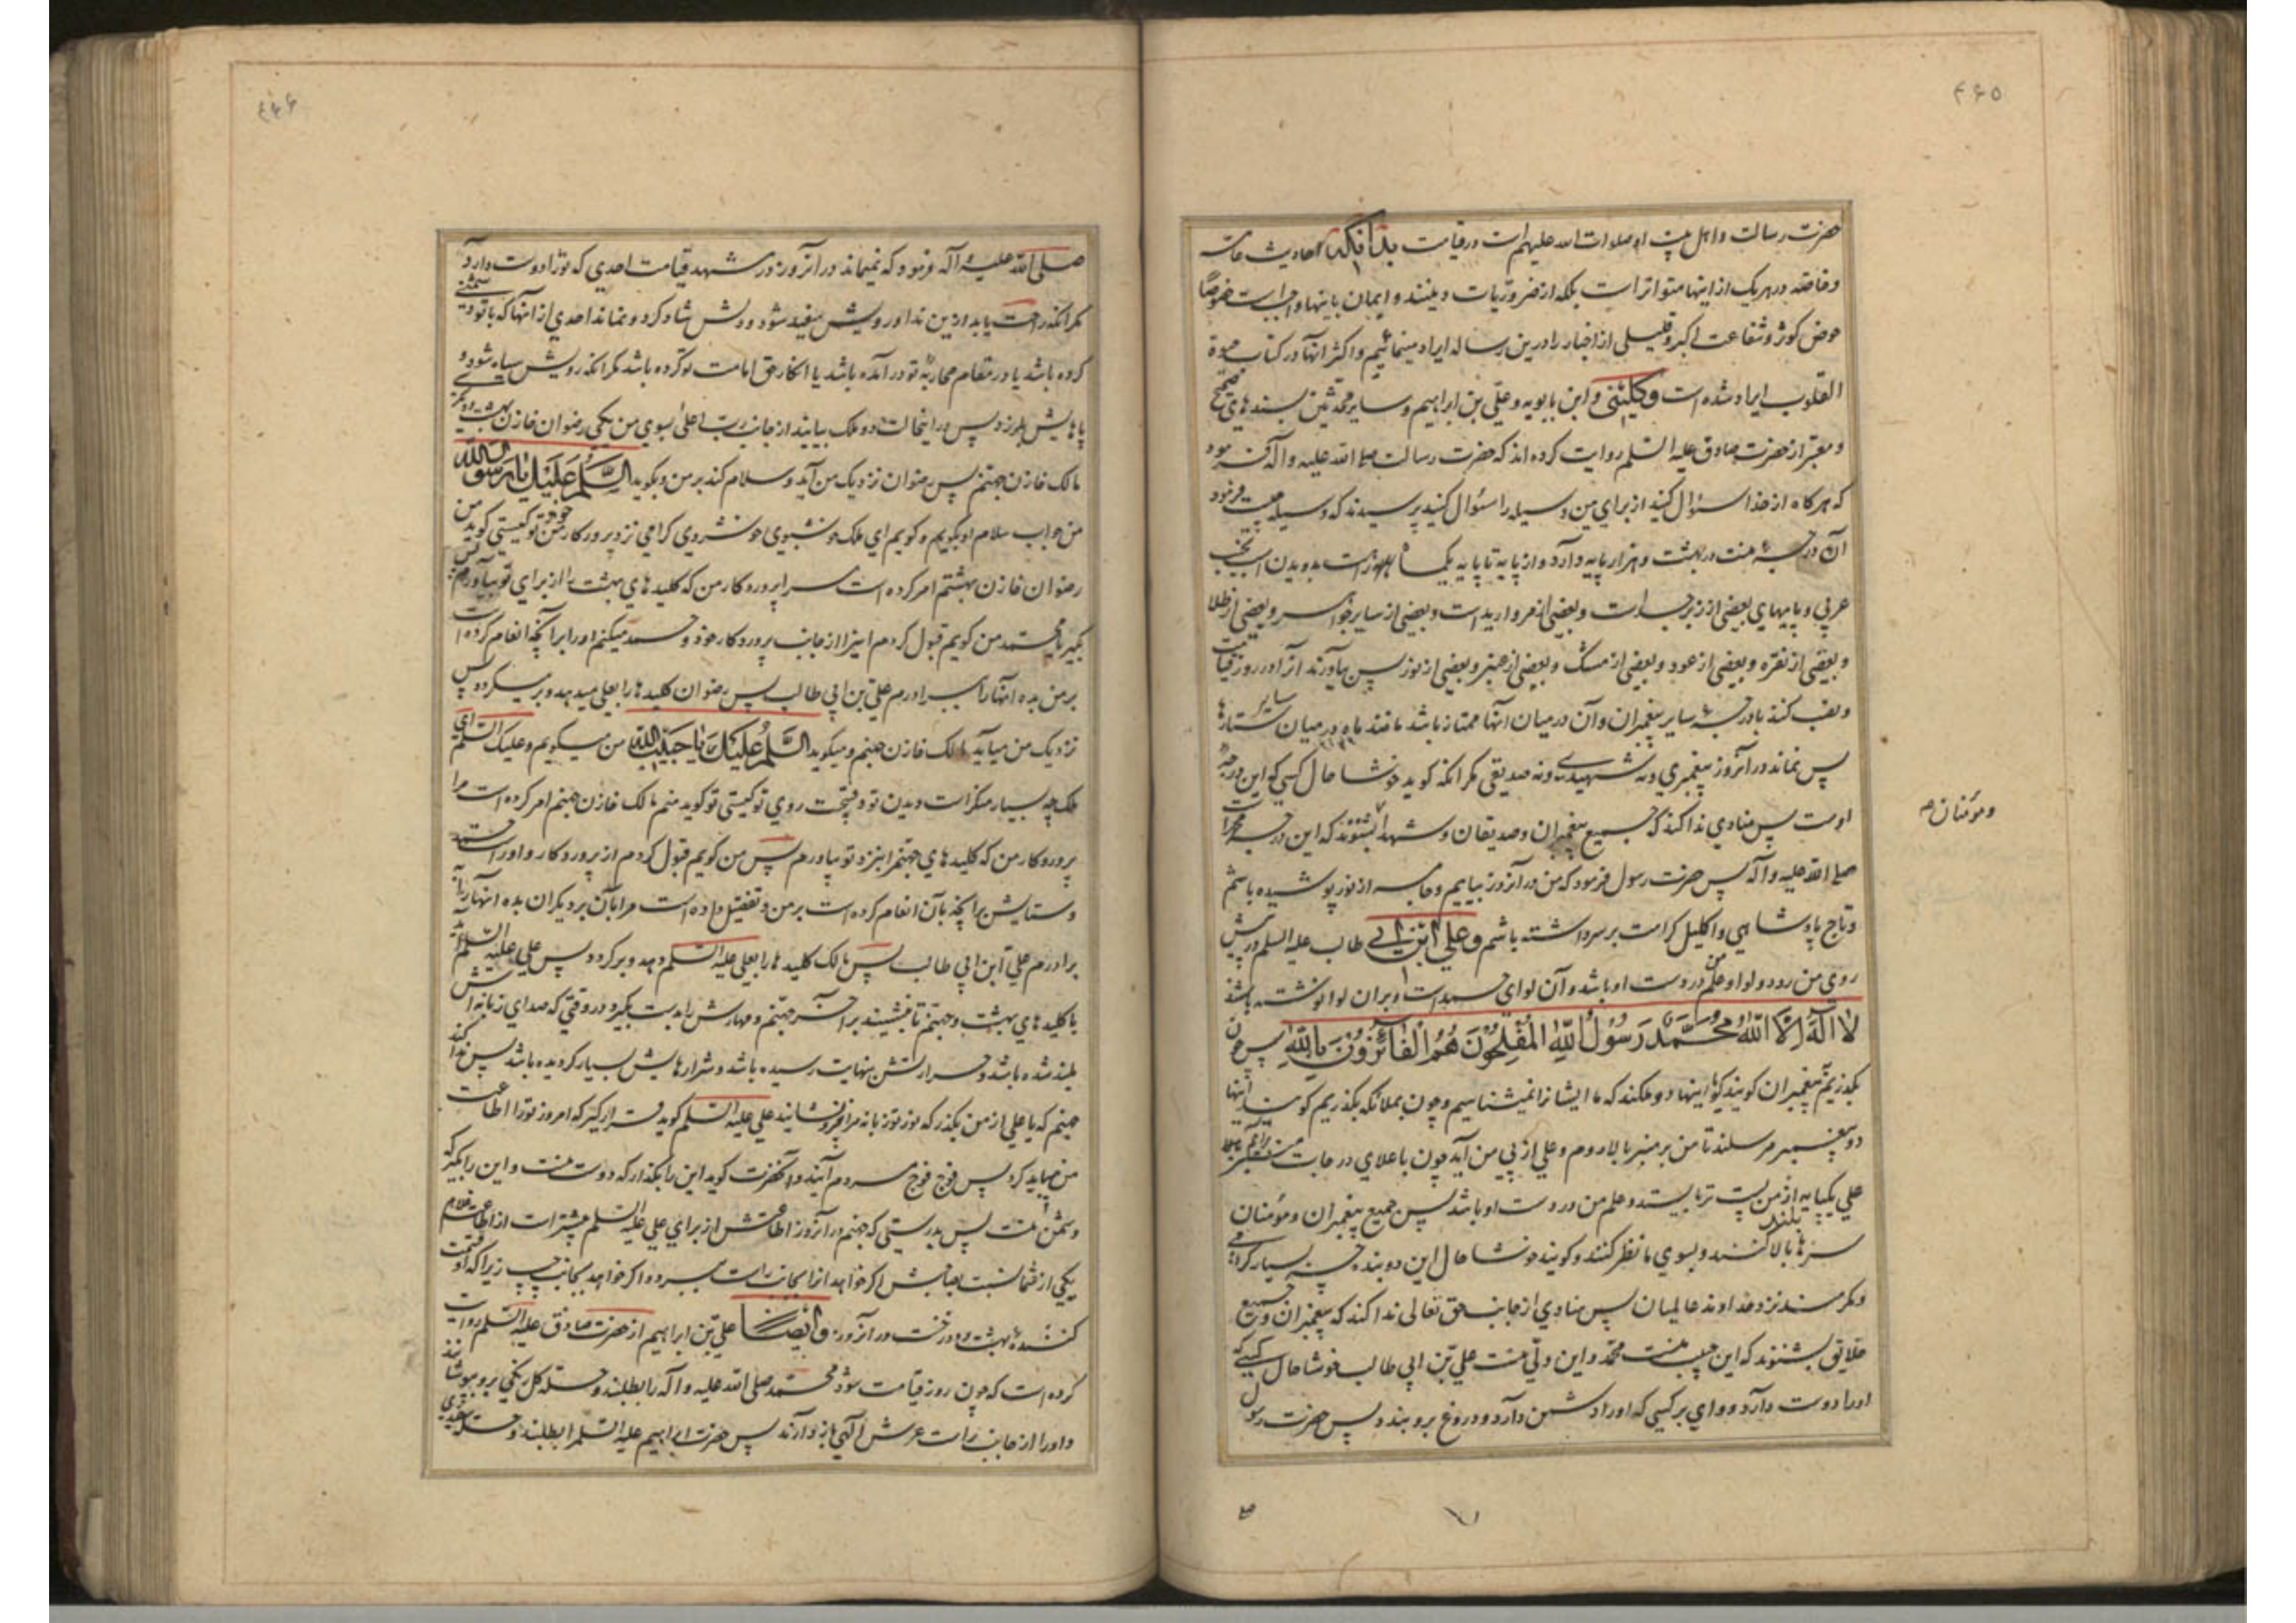 ۴۶۵
حضرت رسالت و اهل بیت او صلوات الله علیهم است در قیامت بدانکه احادیث عامه
و خاصه در هر یک از اینها متواتر است بلکه از ضروریات دینند و ایمان باینها واجبست خصوصا
حوض کوثر و شفاعت کبر و قلیلی از اخبار را درین رساله ایراد مینمائیم و اکثر آنها در کتاب حیوة
القلوب ایراد شده است و کلینی و ابن بابویه و علی بن ابراهیم و سایر محدثین بسندهای صحیح
و معتبر از حضرت صادق علیه السلم روایت کرده اند که حضرت رسالت صلی الله علیه و آله فرمود
که هر کاه از خدا سئوال کنید از برای من وسیله را سئوال کنید پرسیدند که وسیله چیست فرمود
آن درجهٔ منست در بهشت و هزار پایه دارد و از پایه تا پایه یکماه راهست بدویدن اسب نجیب
عربی و پایهای بعضی از زبرجد است و بعضی از مروارید است و بعضی از سایر جواهر و بعضی از طلا
و بعضی از نقره و بعضی از عود و بعضی از مسک و بعضی از عنبر و بعضی از نور پس بیاورند آنرا در روز قیامت
و نصب کنند با درجهٔ سایر پیغمبران و آن در میان آنها ممتاز باشد مانند ماه در میان سایر ستارها
پس نماند در آنروز پیغمبری و نه شهیدی و نه صدیقی مکر آنکه کوید خوشا حال کسی که این درجهٔ
اوست پس منادی ندا کند که جمیع پیغمبران و صدیقان و شهدا بشنوند که این درجه محمد است
و مؤمنان م
صلی الله علیه و آله پس حضرت رسول فرمود که من در آنروز بیایم و جامه از نور پوشیده باشم
و تاج پادشاهی و اکلیل کرامت بر سر داشته باشم و علی ابن ابی طالب علیه السلم در پیش
روی من رود و لوا و علم من در دست او باشد و آن لوای حمد است و بران لوا نوشته باشد
لا اله الا الله محمد رسول الله المفلحون هم الفائزون بالله پس چون
بکذریم پیغمبران کویند که اینها دو ملکند که ما ایشانرا نمیشناسیم و چون بملائکه بکذریم کویند اینها
دو پیغمبر مرسلند تا من بر منبر بالا روم و علی از پی من آید چون باعلای درجات منبر برآیم
علی یکپایه از من پست تر بایستد و علم من در دست او باشد پس جمیع پیغمبران و مؤمنان
سرها بالا بلند کنند و بسوی ما نظر کنند و کویند خوشا حال این دو بنده چه بسیار کرامی
و مکرمند نزد خداوند عالمیان پس منادی از جانب حق تعالی ندا کند که پیغمبران و جمیع
خلایق بشنوند که این حبیب منست محمد و این ولی منست علی بن ابی طالب خوشا حال کسی که
او را دوست دارد و وای بر کسی که او را دشمن دارد و دروغ برو بندد پس حضرت رسول
۴۶۶
صلی الله علیه و آله فرمود که نمیماند در آنروز در مشهد قیامت احدی که تو را دوست دارد
مکر آنکه راحت یابد ازین ندا و رویش سفید شود و دلش شاد کردد و نماند احدی از آنها که با تو دشمنی
کرده باشد یا در مقام محاربهٔ تو در آمده باشد یا انکار حق امامت تو کرده باشد مکر آنکه رویش سیاه شود و
پاهایش بلرزد پس در اینحالت دو ملک بیایند از جانب رب اعلی بسوی من یکی رضوان خازن بهشت و دیکری
مالک خازن جهنم پس رضوان نزدیک من آید و سلام کند بر من و بکوید السلم علیک یا رسول الله
من جواب سلام او بکویم و کویم ای ملک خوشبوی خوشروی کرامی نزد پرورکار خود تو کیستی کوید من
رضوان خازن بهشتم امر کرده است مرا پروردکار من که کلیدهای بهشت را از برای تو بیاورم پس
بکیر یا محمد من کویم قبول کردم اینرا از جانب پروردکار خود و حمد میکنم او را برانچه انعام کرده است
بر من بده آنها را ببرادرم علی بن ابی طالب پس رضوان کلیدها را بعلی میدهد و بر میکردد پس
نزدیک من میآید مالک خازن جهنم و میکوید السلم علیک یا حبیب الله من میکویم و علیک السلم ای
ملک چه بسیار منکر است دیدن تو و قبیحست روی تو کیستی تو کوید منم مالک خازن جهنم امر کرده است مرا
پروردکار من که کلیدهای جهنم را بنزد تو بیاورم پس من کویم قبول کردم از پروردکار و او راست حمد
و ستایش برانچه بآن انعام کرده است بر من و تفضیل داده است مرا بآن بر دیکران بده آنها را به
برادرم علی ابن ابی طالب پس مالک کلیدها را بعلی علیه السلم دهد و برکردد پس علی علیه السلم بیاید
با کلیدهای بهشت و جهنم تا بنشیند بر آخر جهنم و مهارش را بدست بکیرد در وقتی که صدای زبانه اش
بلند شده باشد و حرارتش بنهایت رسیده باشد و شرارهایش بسیار کردیده باشد پس ندا کند
جهنم که یا علی از من بکذر که نور تو زبانه مرا فرو نشانید علی علیه السلم کوید قرار کیر که امروز تو را اطاعت
من میباید کرد پس فوج فوج مردم آیند و آنحضرت کوید این را بکذار که دوست منست و این را بکیر که
دشمن منست پس بدرستی که جهنم در آنروز اطاعتش از برای علی علیه السلم بیشتر است از اطاعت غلام
یکی از شما نسبت بصاحبش اکر خواهد آنرا بجانب راست میبرد و اکر خواهد بجانب چپ زیرا که او قسمت
کنندهٔ بهشت و دوزخست در آنروز و ایضا علی بن ابراهیم از حضرت صادق علیه السلم روایت
کرده است که چون روز قیامت شود محمد صلی الله علیه و آله را بطلبند و حله کل رنکی برو بپوشانند
و او را از جانب راست عرش الهی باز دارند پس حضرت ابراهیم علیه السلم را بطلبند و حله سفیدی